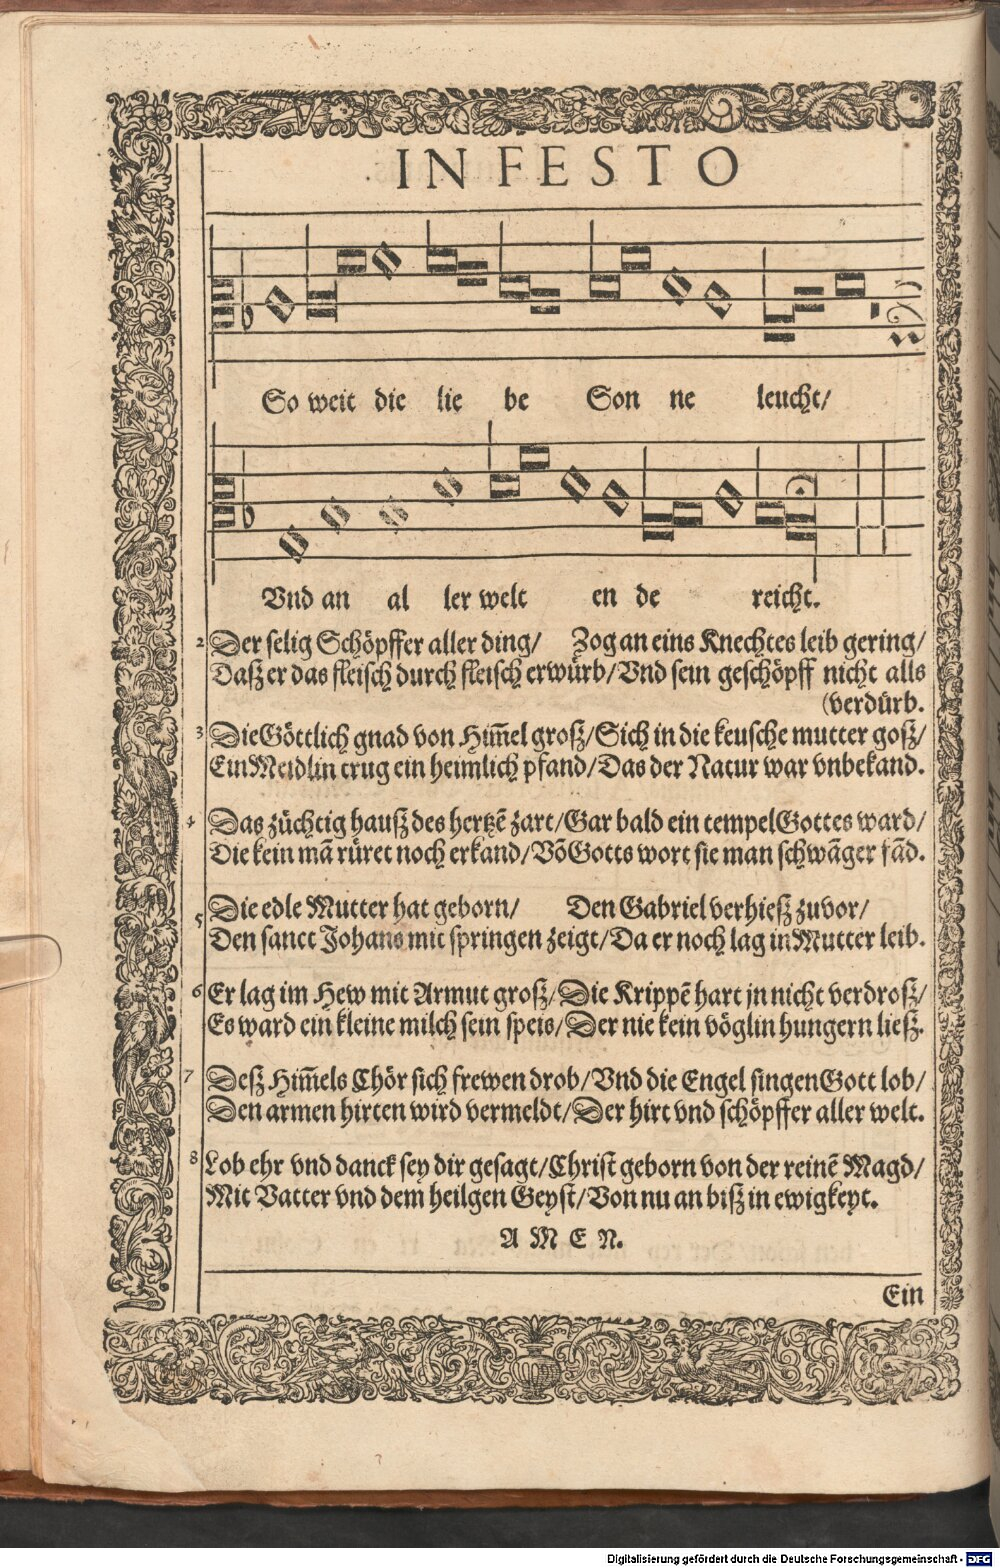 IN FESTO
So weit die lie be Son ne leucht/
Vnd an al ler welt en de reicht.
2 Der selig Schöpffer aller ding/ Zog an eins Knechtes leib gering/
Dasz er das fleisch durch fleisch erwürb/ Vnd sein geschöpff nicht alls
(verdürb.
3 Die Göttlich gnad von Him̄el grosz/ Sich in die keusche mutter gosz/
Ein Meidlin trug ein heimlich pfand/ Das der Natur war vnbekand.
4 Das züchtig hausz des hertzē zart/ Gar bald ein tempel Gottes ward/
Die kein mā rüret noch erkand/ Vō Gotts wort sie man schwāger fād.
5 Die edle Mutter hat geborn/ Den Gabriel verhiesz zuvor/
Den sanct Johans mit springen zeigt/ Da er noch lag in Mutter leib.
6 Er lag im Hew mit Armut grosz/ Die Krippē hart jn nicht verdrosz/
Es ward ein kleine milch sein speis/ Der nie kein vöglin hungern liesz.
7 Desz Him̄els Chör sich frewen drob/ Vnd die Engel singen Gott lob/
Den armen hirten wird vermeldt/ Der hirt vnd schöpffer aller welt.
8 Lob ehr vnd danck sey dir gesagt/ Christ geborn von der reinē Magd/
Mit Vatter vnd dem heilgen Geyst/ Von nu an bisz in ewigkeyt.
A M E N.
Ein
Digitalisierung gefördert durch die Deutsche Forschungsgemeinschaft - DFG